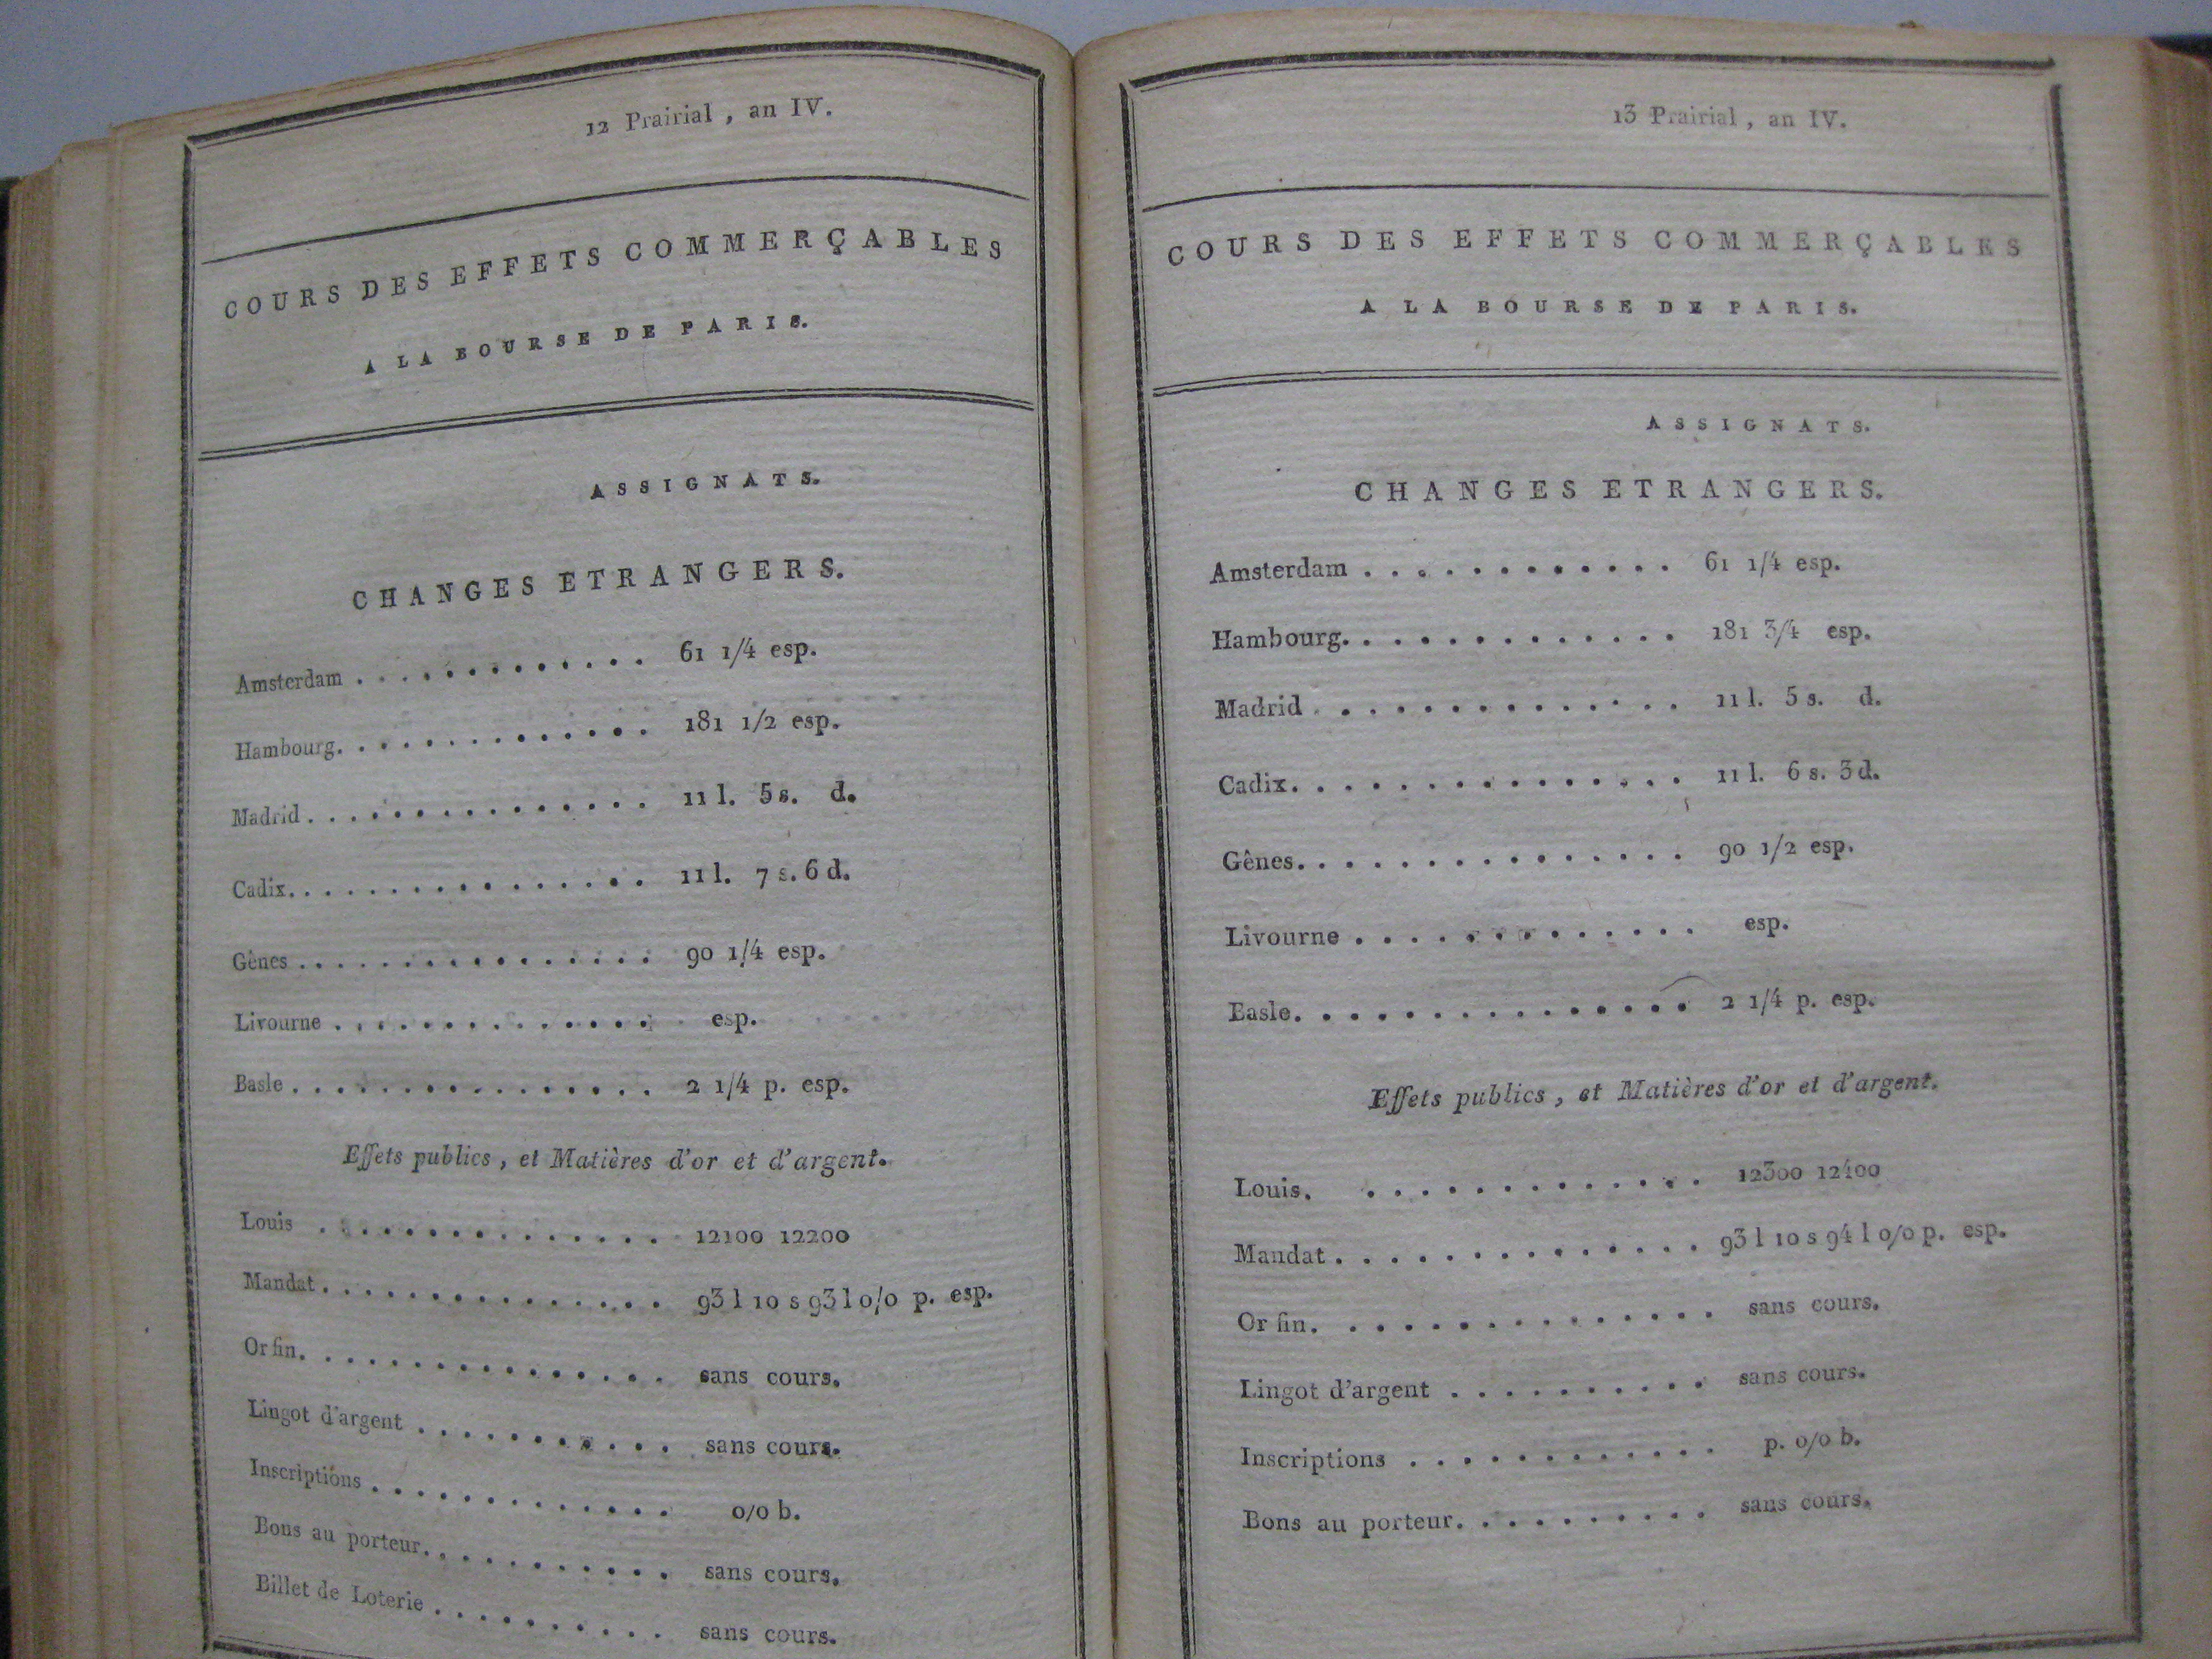 12 Prairial , an IV.
COURS DES EFFETS COMMERÇABLES
A LA BOURSE DE PARIS.
ASSIGNATS.
CHANGES ETRANGERS.
Amsterdam . . . . . . . . . . . . . 61 1/4 esp.
Hambourg. . . . . . . . . . . . . 181 1/2 esp.
Madrid . . . . . . . . . . . . . . 11 l. 5 s. d.
Cadix. . . . . . . . . . . . . . . 11 l. 7 s. 6 d.
Gènes . . . . . . . . . . . . . . . 90 1/4 esp.
Livourne . . . . . . . . . . . . . . esp.
Basle . . . . . . . . . . . . . . . 2 1/4 p. esp.
Effets publics , et Matières d'or et d'argent.
Louis . . . . . . . . . . . . . . 12100 12200
Mandat . . . . . . . . . . . . . . 93 l 10 s 93 l 0/0 p. esp.
Or fin. . . . . . . . . . . . . . . sans cours.
Lingot d'argent . . . . . . . . . . . sans cours.
Inscriptions . . . . . . . . . . . . 0/0 b.
Bons au porteur. . . . . . . . . . . sans cours.
Billet de Loterie . . . . . . . . . . sans cours.
13 Prairial , an IV.
COURS DES EFFETS COMMERÇABLES
A LA BOURSE DE PARIS.
ASSIGNATS.
CHANGES ETRANGERS.
Amsterdam . . . . . . . . . . . . 61 1/4 esp.
Hambourg. . . . . . . . . . . . . 181 3/4 esp.
Madrid . . . . . . . . . . . . . . 11 l. 5 s. d.
Cadix. . . . . . . . . . . . . . . 11 l. 6 s. 3 d.
Gênes. . . . . . . . . . . . . . . 90 1/2 esp.
Livourne . . . . . . . . . . . . . esp.
Basle. . . . . . . . . . . . . . . 2 1/4 p. esp.
Effets publics , et Matières d'or et d'argent.
Louis. . . . . . . . . . . . . . 12300 12400
Mandat . . . . . . . . . . . . . . 93 l 10 s 94 l 0/0 p. esp.
Or fin. . . . . . . . . . . . . . . sans cours.
Lingot d'argent . . . . . . . . . . sans cours.
Inscriptions . . . . . . . . . . . . p. 0/0 b.
Bons au porteur. . . . . . . . . . sans cours.